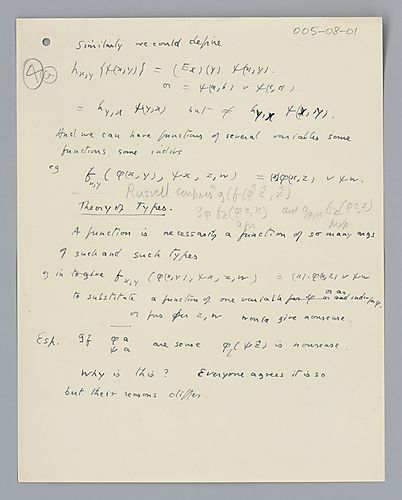 005-08-01
Similarly we could define
4a
h x,y {ψ(x,y)} = (Ex)(y) ψ(x,y).
or = ψ(a,b) ∨ ψ(c,d)
= h y,x ψ(y,x) but ≠ h y,x ψ(x,y).
And we can have functions of several variables some
functions some indivs
eg f x,y (φ(x,y), ψx, z, w) = (x)φ(x,z) ∨ ψw.
Russell confuses g(f(φ ẑ, x̂)
Theory of Types.
and
A function is necessarily a function of so many args
of such and such types
eg in to give f x,y (φ(x,y), ψx, z, w) = (x).φ(x,z) ∨ ψw
to substitute a function of one variable for φ or an indiv
or for z, w would give nonsense.
Esp. If φa
ψa are sense φ(ψẑ) is nonsense.
Why is this? Everyone agrees it is so
but their reasons differ.